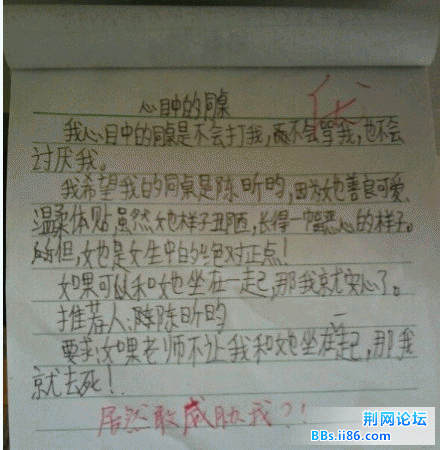 心目中的同桌
我心目中的同桌是不会打我,不会骂我,也不会
讨厌我。
我希望我的同桌是陈昕昀,因为她善良可爱、
温柔体贴,虽然她样子丑陋,长得一幅恶心的样子。
但,她是女生中的绝对正点!
如果可以和她坐在一起,那我就安心了。
推荐人:陈昕昀
要求:如果老师不让我和她坐在一起,那我
就去死!
居然敢威胁我?!
荆网论坛
BBs.ii86.com